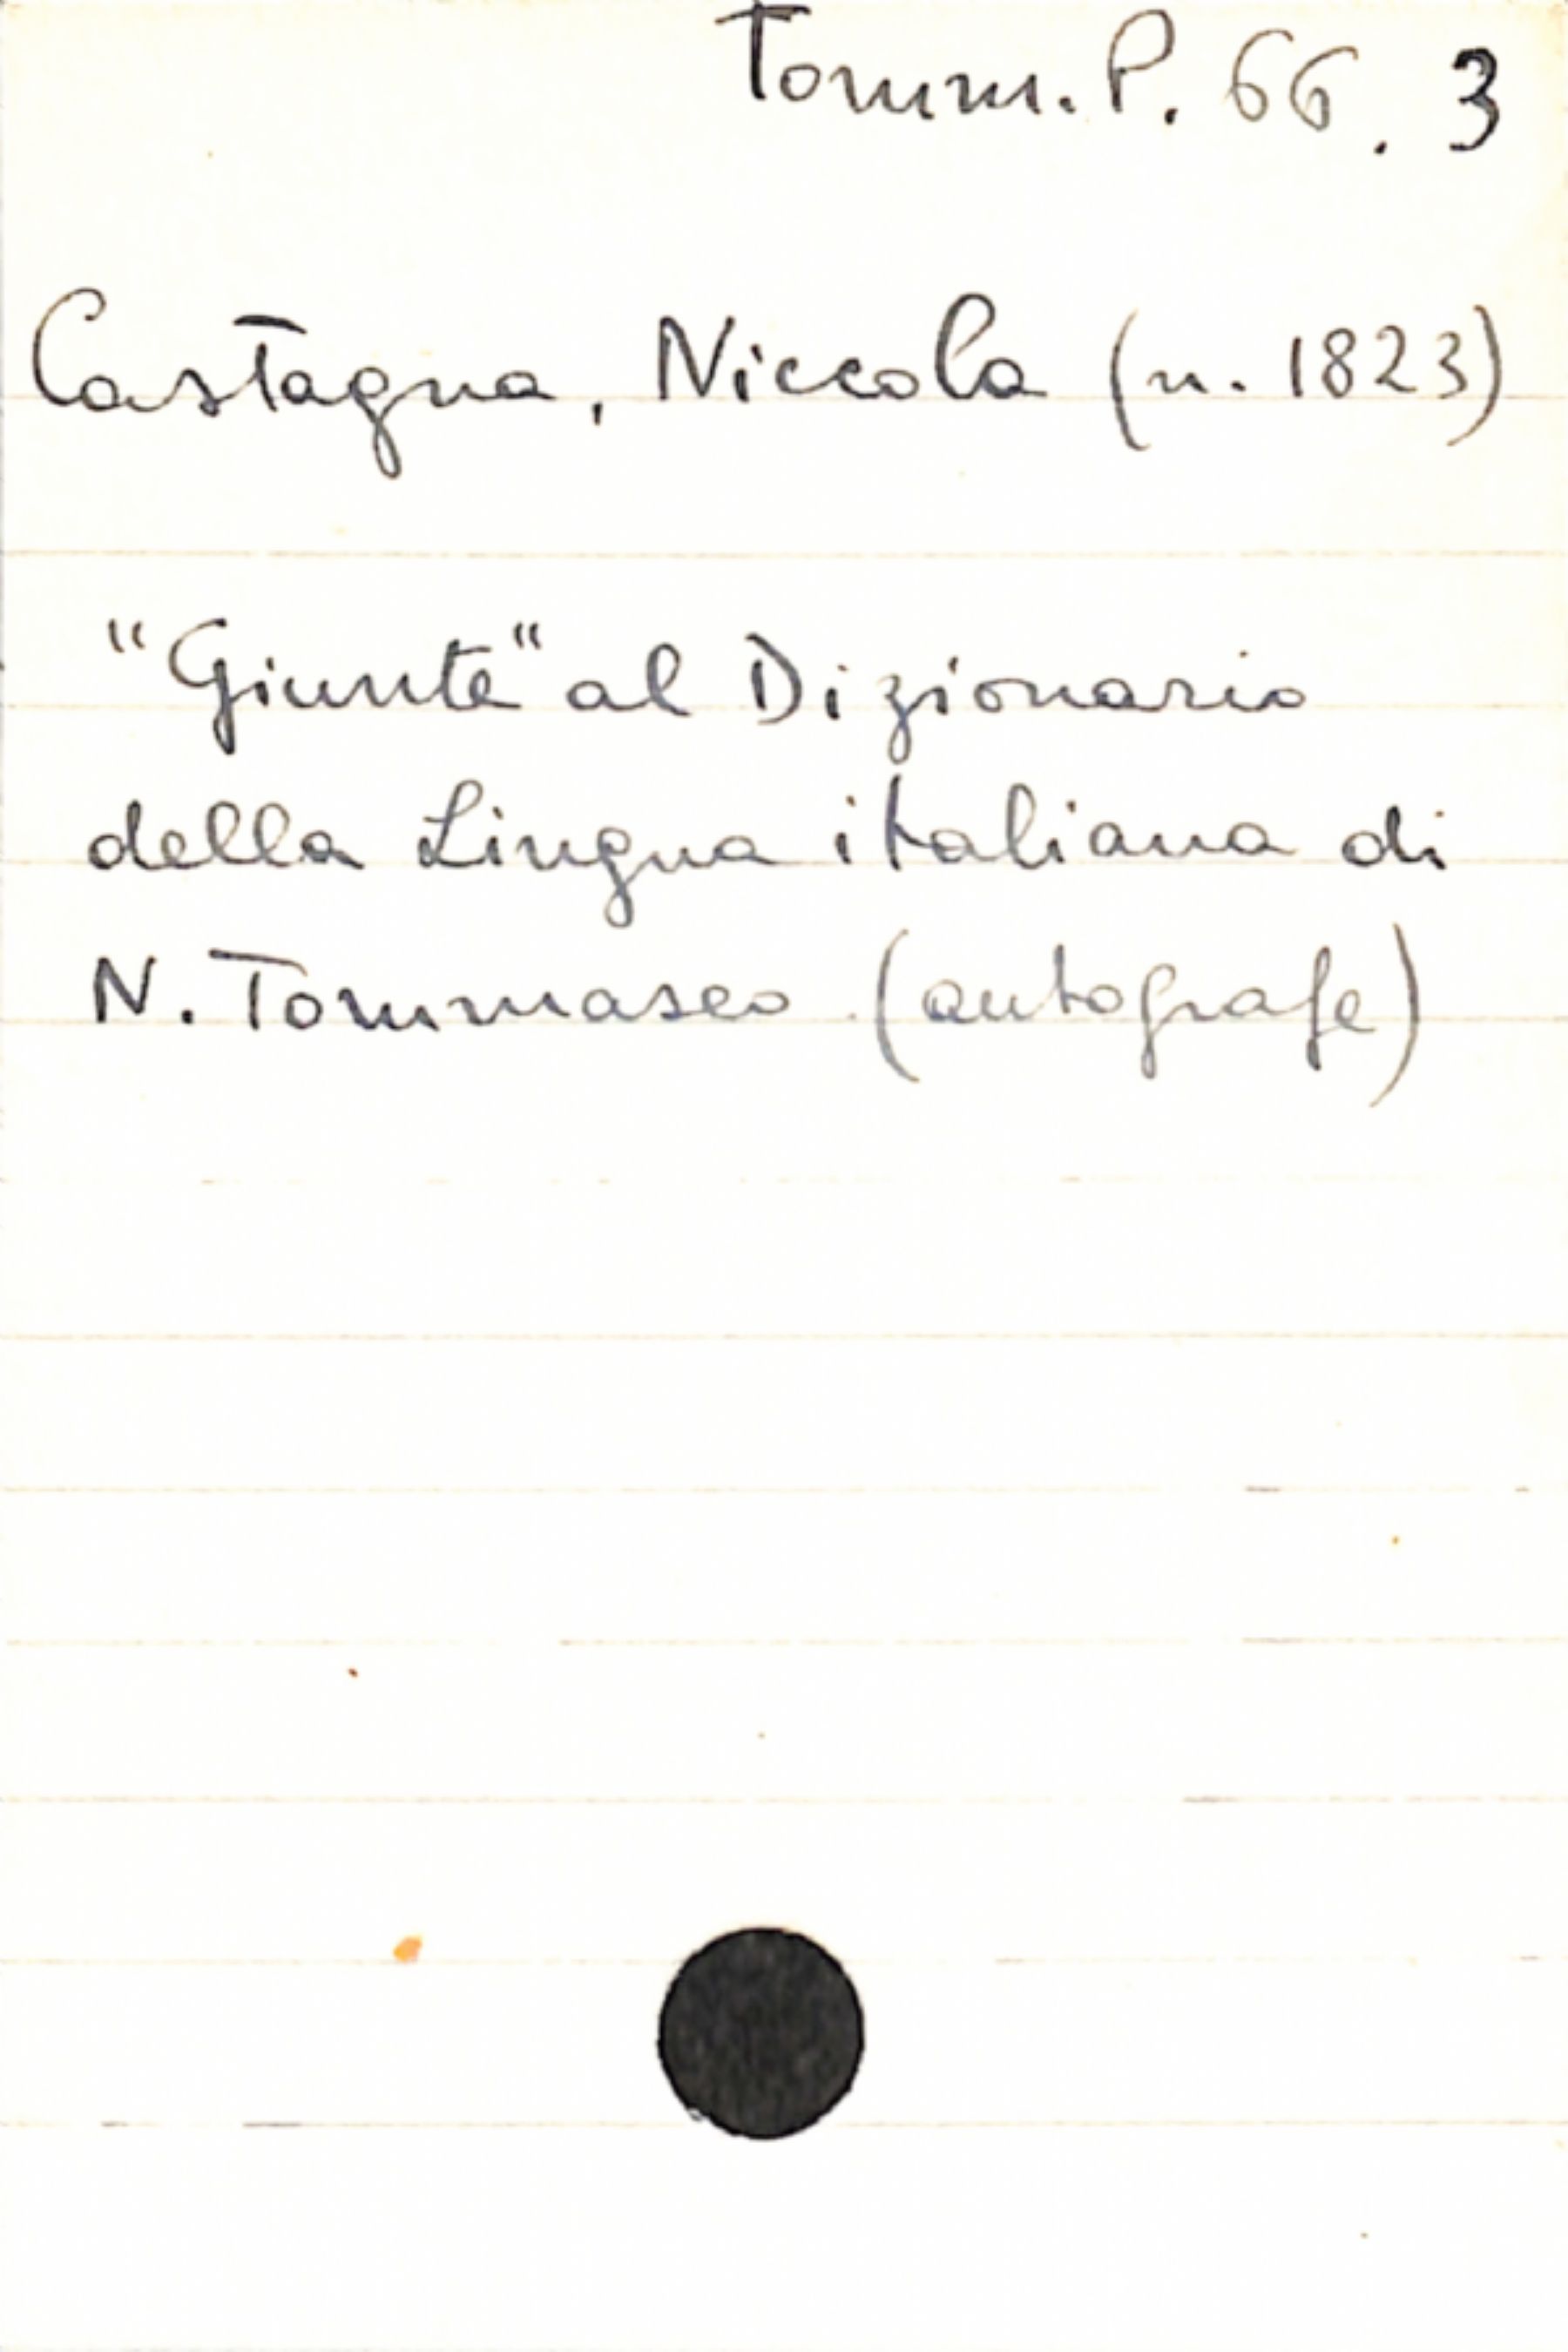 Tomm. P. 66. 3
Castagna, Niccola (n. 1823)
"Giunte" al Dizionario
della Lingua italiana di
N. Tommaseo (autografe)